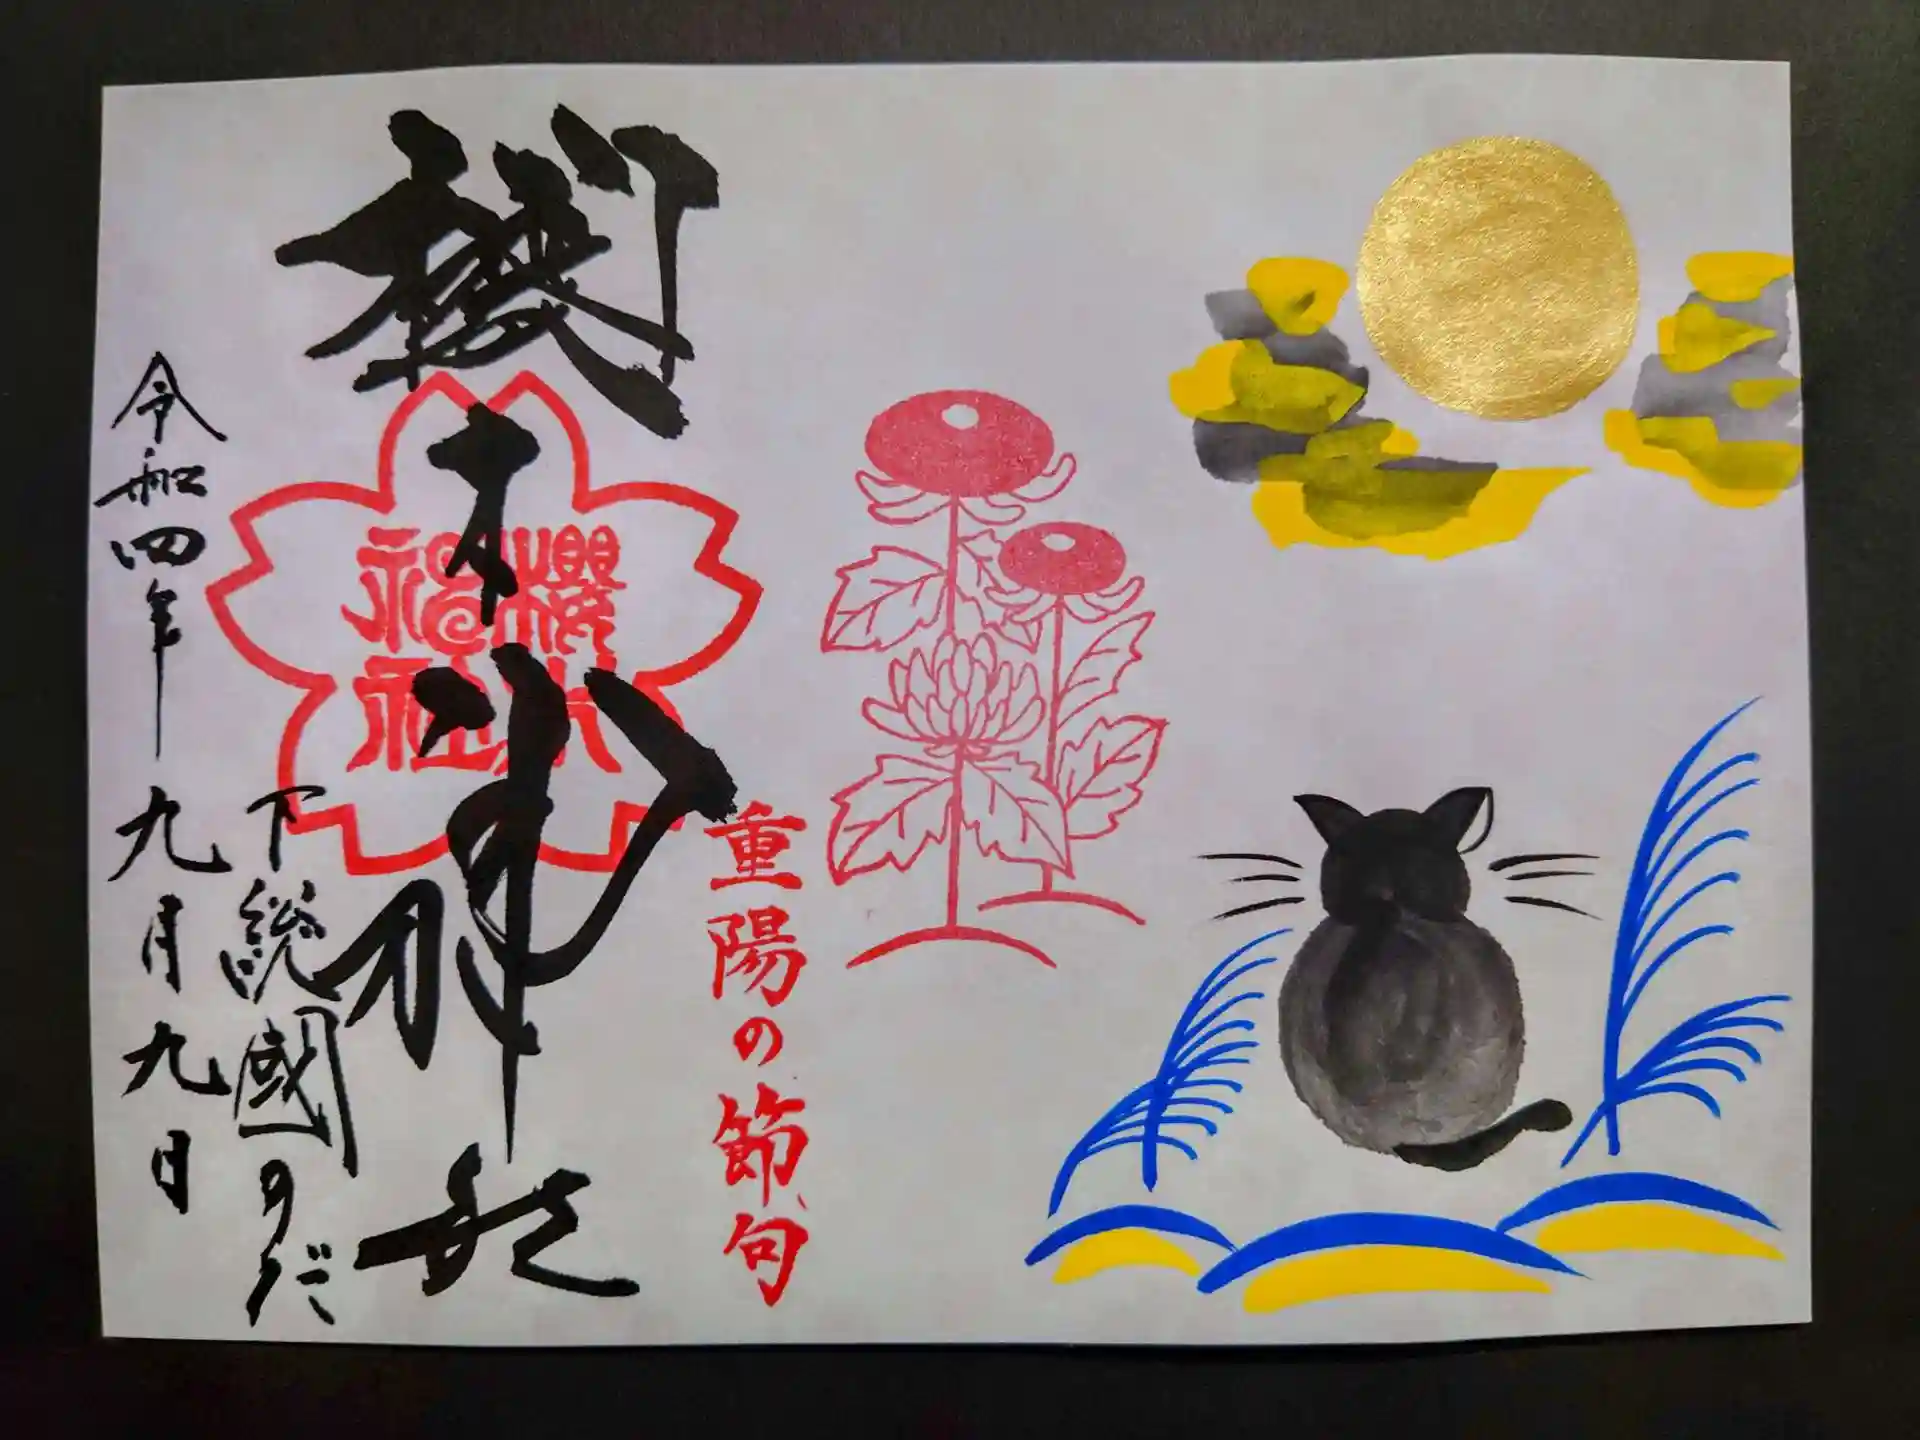 重陽の節句
櫻木神社
櫻木
神社
下総國のだ
令和四年九月九日